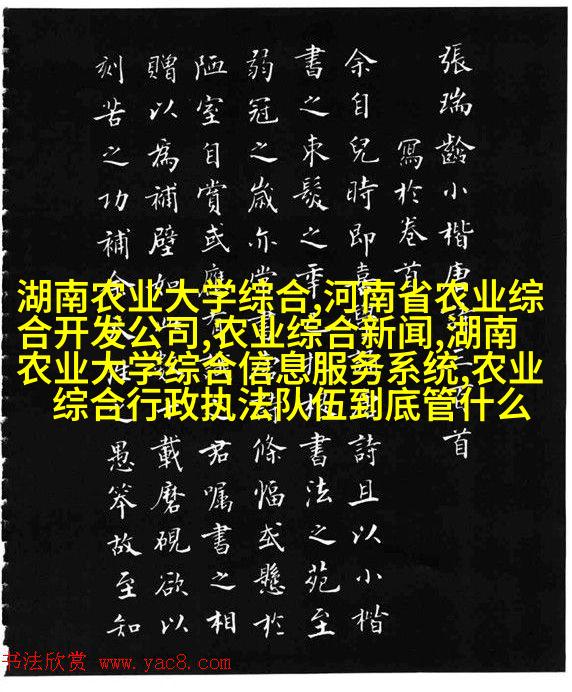 張瑞齡小楷唐首
寫於卷首
余自兒時即喜詩且以小楷
書之束髮之年書法之苑至
弱冠之歲亦嘗書條幅或懸於
陋室自賞或應君囑書之相
贈以為補壁如載磨硯欲以
刻苦之功補余愚笨故至知
湖南农业大学综合,河南省农业综
合开发公司,农业综合新闻,湖南
农业大学综合信息服务系统,农业
综合行政执法队伍到底管什么
书法欣赏 www.yac8.com